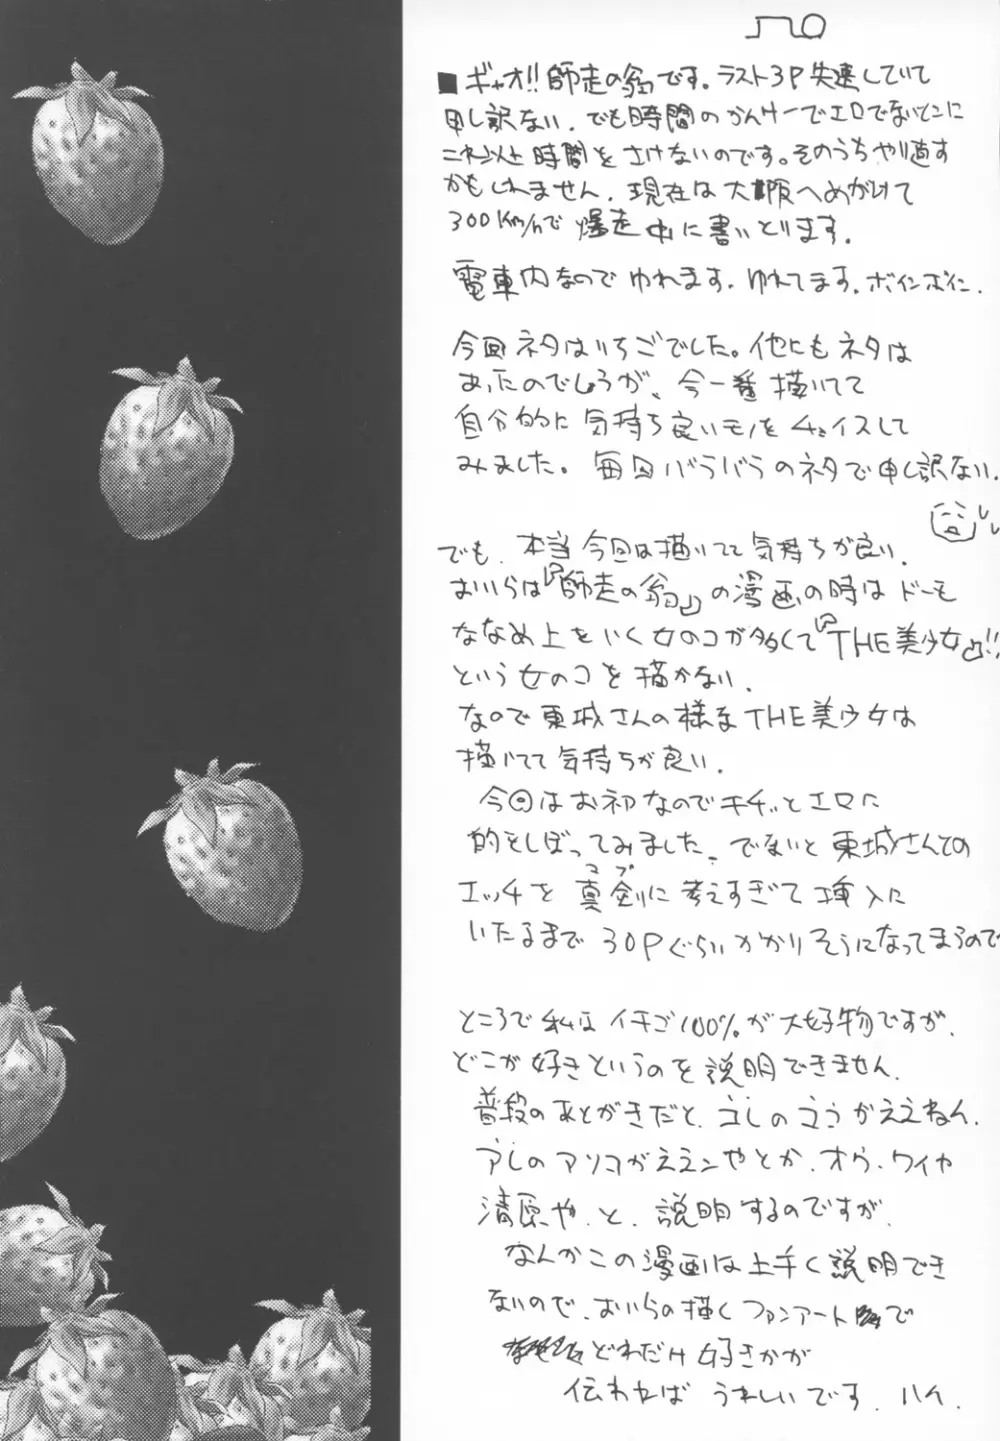 ■ギャオ!!師走の翁です。ラスト3P失速していて
申し訳ない。でも時間のかんけーでエロでないとこに
これ以上時間をさけないのです。そのうちやり直す
かもしれません。現在は大阪へめがけて
300km/hで爆走中に書いとります。
電車内なのでゆれます。ゆれてます。ボインボイン.
今回ネタはいちごでした。他にもネタは
あったのでしょうが、今一番描いてて
自分的に気持ち良いモノをチョイスして
みました。毎回バラバラのネタで申し訳ない.
でも、本当今回は描いてて気持ちが良い.
おいらは『師走の翁』の漫画の時はドーモ
ななめ上をいく女のコが多くて『THE美少女』!!
という女のコを描かない.
なので東城さんの様なTHE美少女は
描いてて気持ちが良い.
今回はお初なのでキチッとエロに
的をしぼってみました。でないと東城さんでの
エッチを真剣に考えすぎて挿入に
マブ
いたるまで30Pぐらいかかりそうになってまうので
ところで私はイチご100%が大好物ですが、
どこが好きというのを説明できません.
普段のあとがきだと、コレのココがええねん.
アレのアソコがええンやとか、オウ、ワイや
清原や、と、説明するのですが、
なんかこの漫画は上手く説明でき
ないので、おいらの描くファンアートで
どれだけ好きかが
伝われば うれしいです. ハイ.